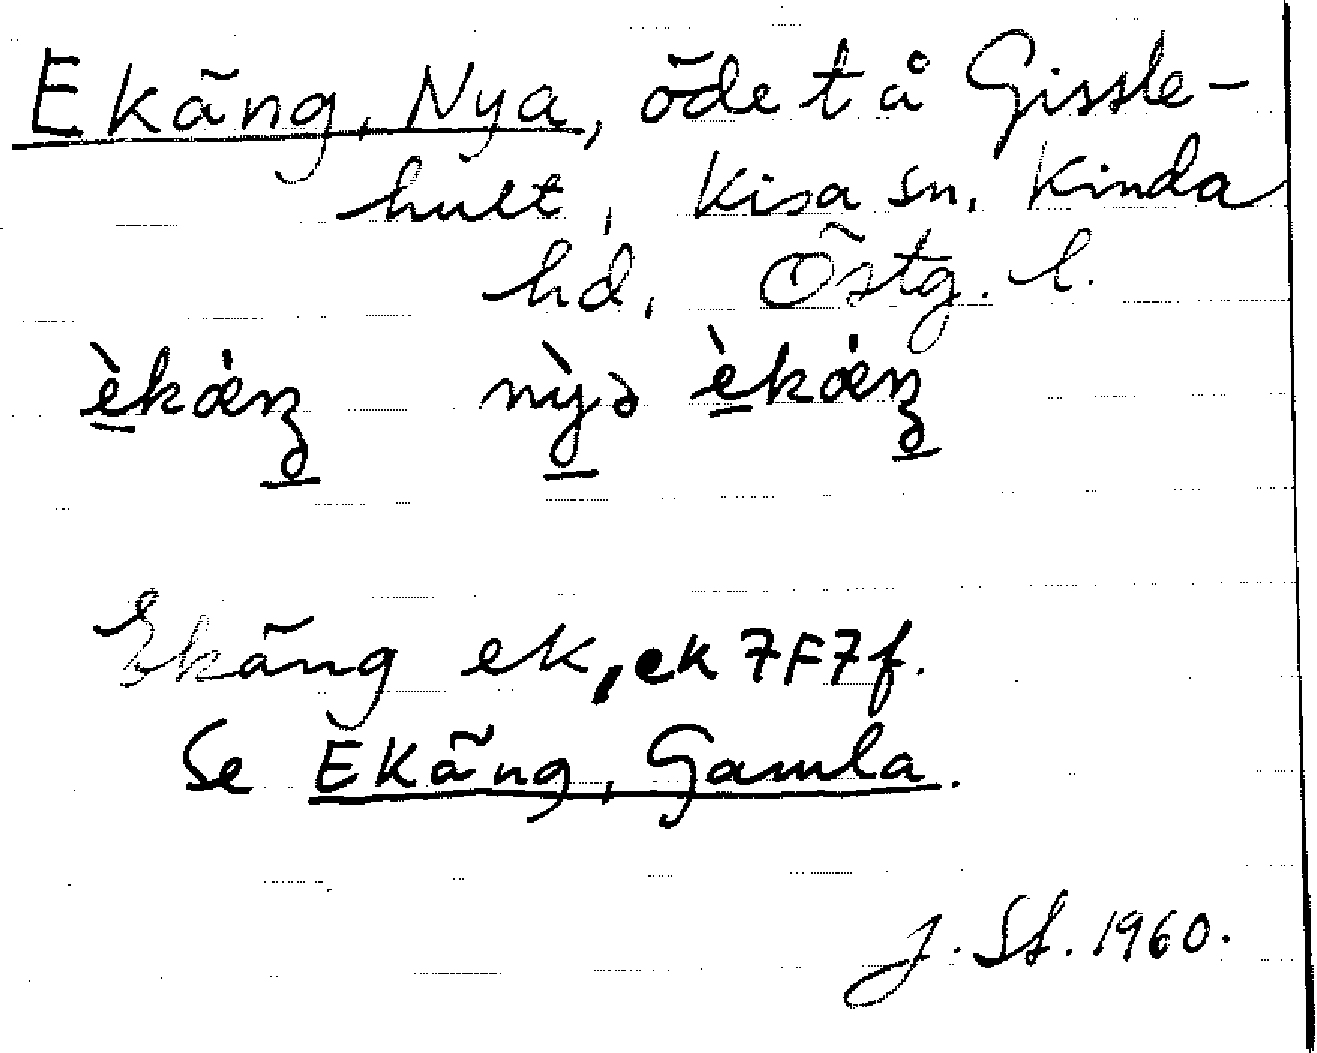 Ekäng, Nya, öde t å Gissle-
hult, Kisa sn, Kinda
hd, Östg. l.
èkáŋ nỳə èkáŋ
Ekäng ek, ek 7F7f.
Se Ekäng, Gamla.
J. St. 1960.